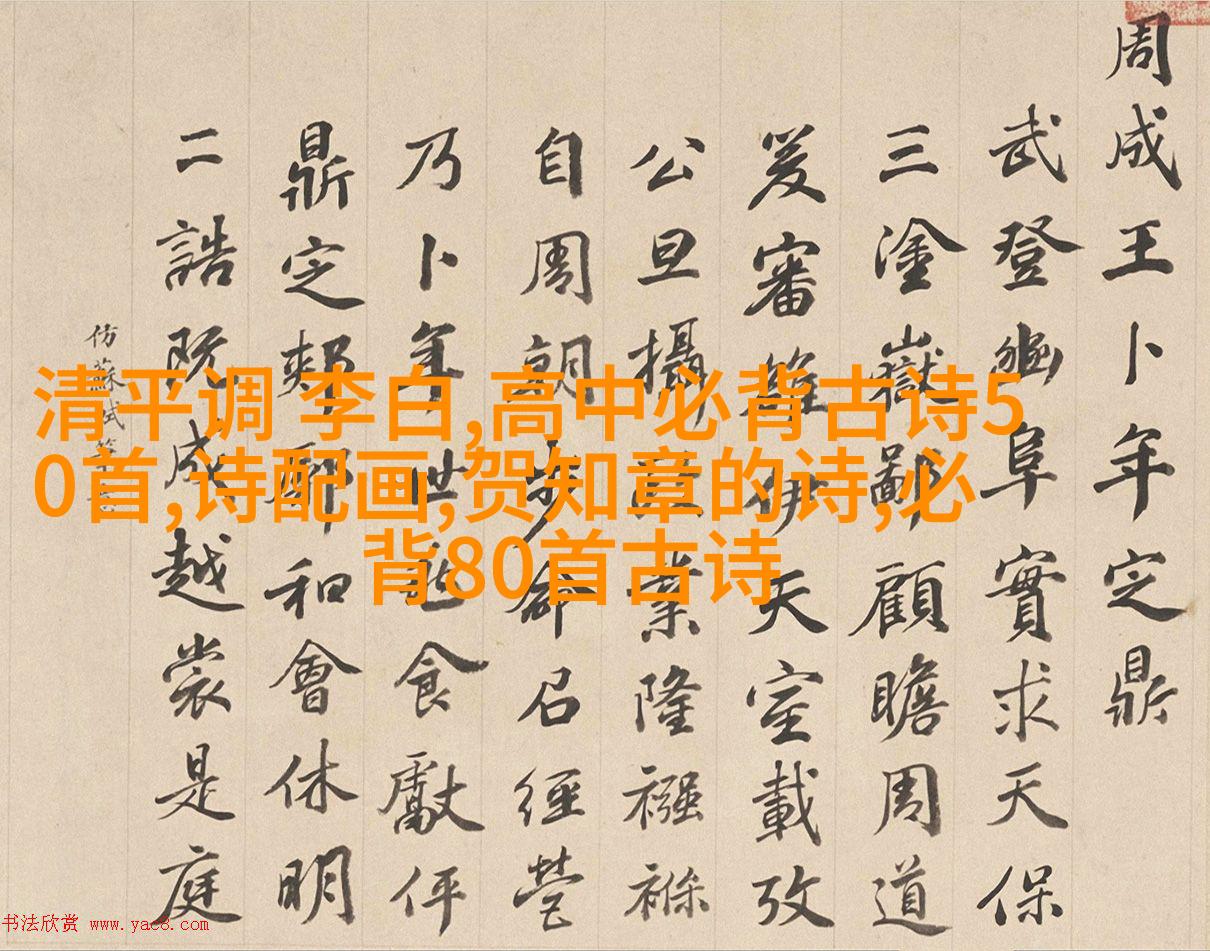 周成王卜年定鼎
武登豳阜實求天保
三塗嶽鄙顧瞻周道
爰審雒伊天室載攷
公旦攝政業隆襁褓
自周朝步命召經營
乃卜年世食獻伻
鼎定郟鄏和會休明
二誥既成越裳是庭
仿蘇軾筆
清平调 李白,高中必背古诗5
0首,诗配画,贺知章的诗,必
背80首古诗
书法欣赏 www.yac8.com